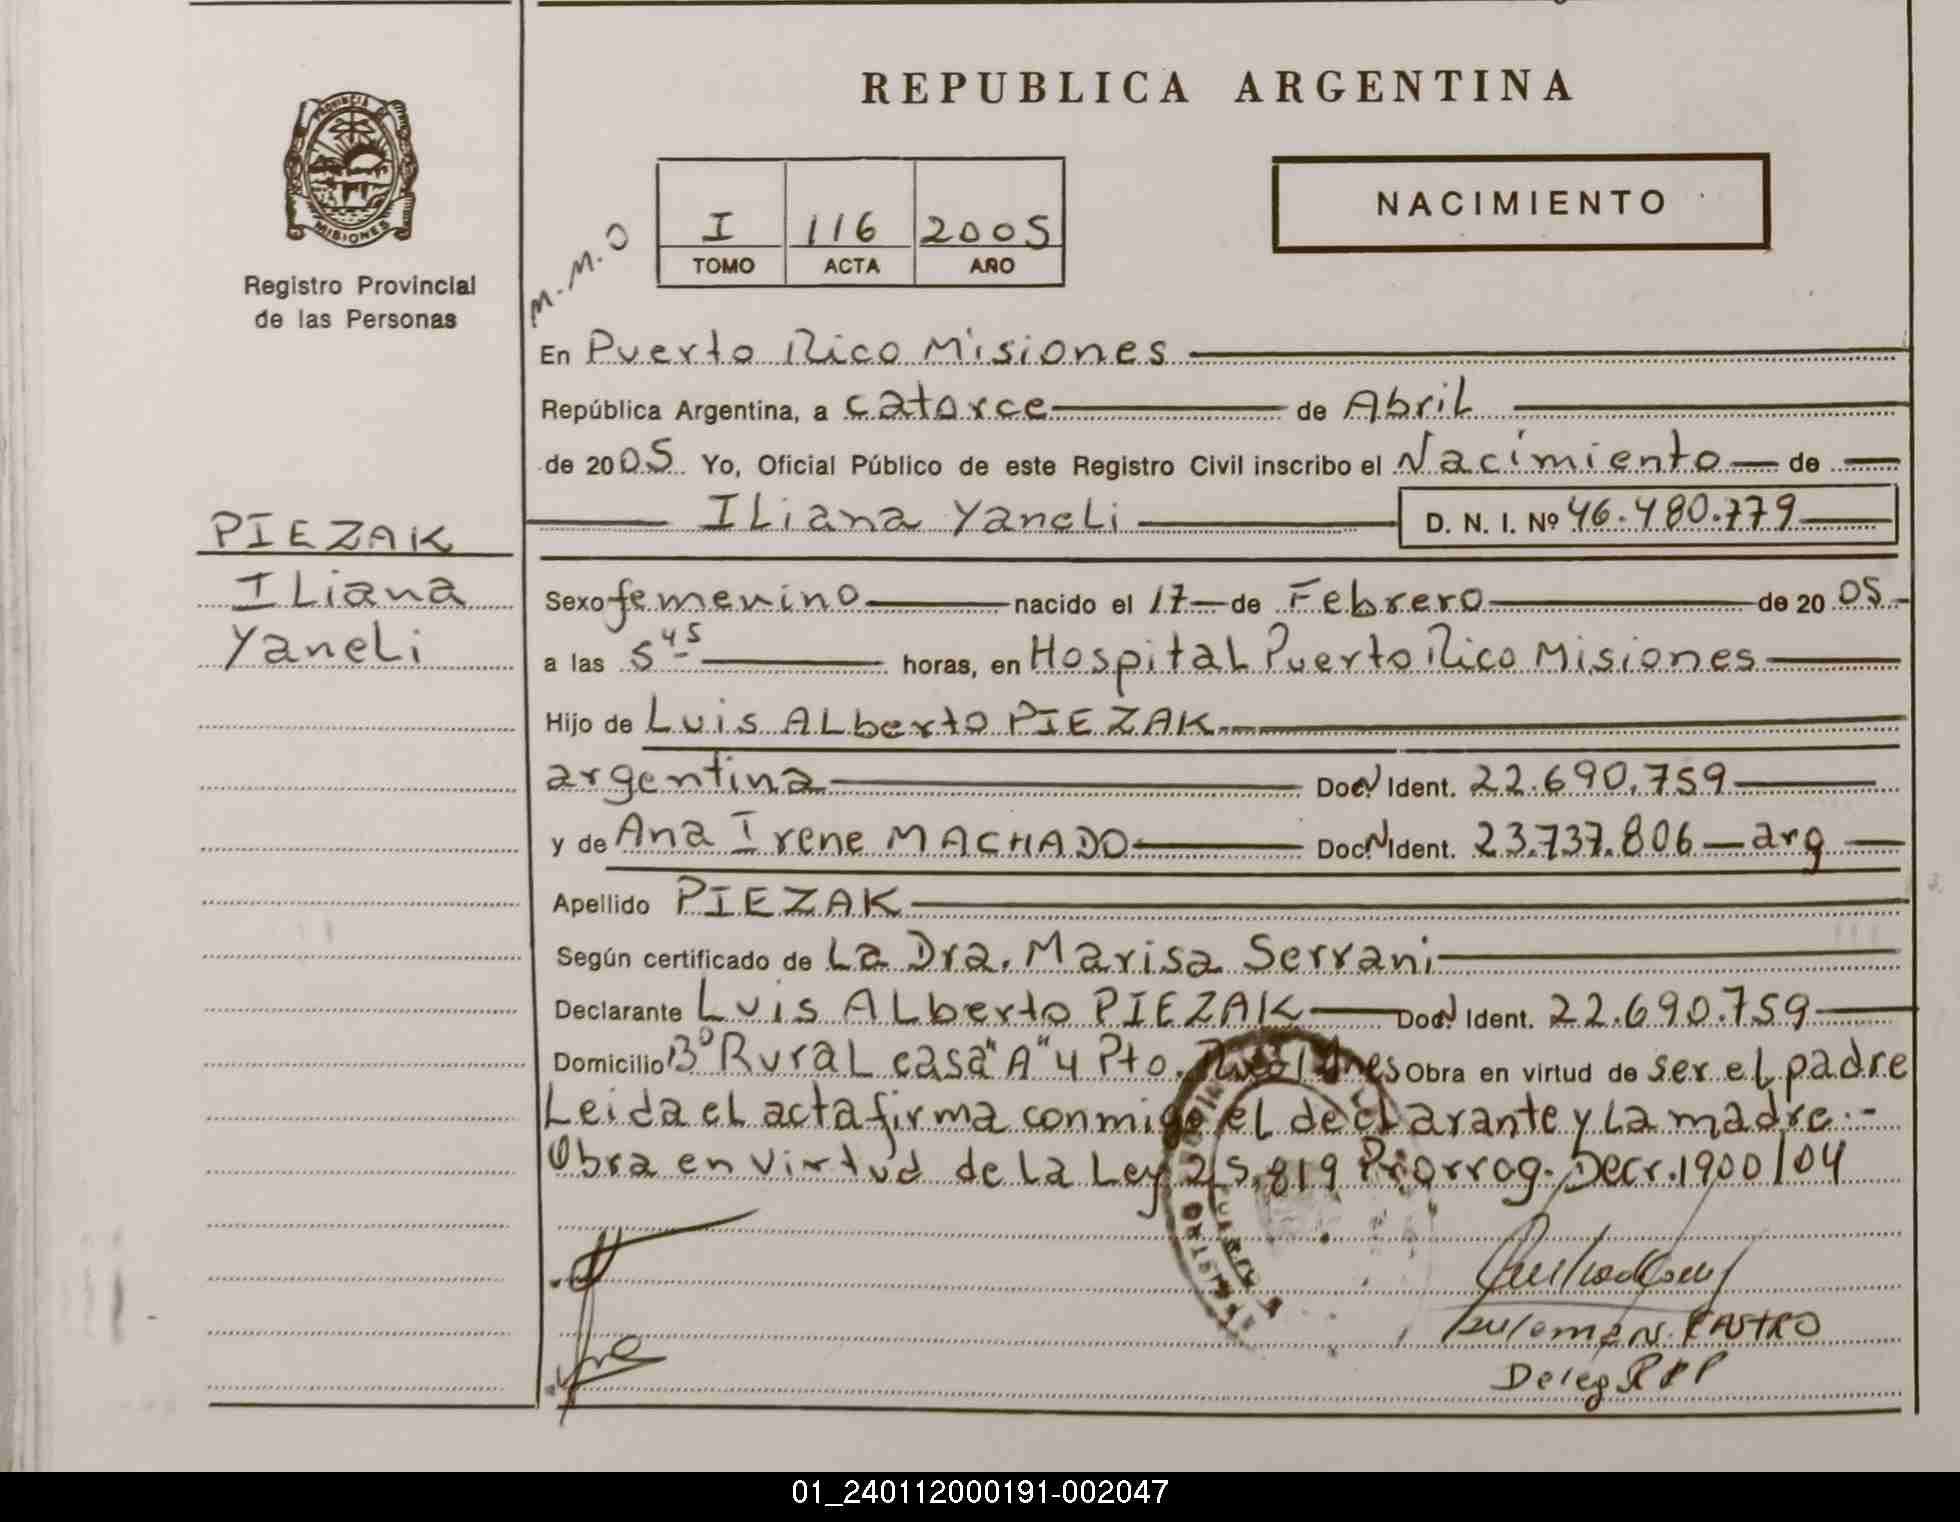 REPUBLICA ARGENTINA
PROVINCIA DE MISIONES
Registro Provincial
de las Personas
NACIMIENTO
M.M.O
I 116 2005
TOMO ACTA AÑO
En Puerto Rico Misiones
República Argentina, a catorce de Abril
de 2005 Yo, Oficial Público de este Registro Civil inscribo el Nacimiento de
ILiana Yaneli D. N. I. Nº 46.480.779
PIEZAK
ILiana
Yaneli
Sexo femenino nacido el 17 de Febrero de 2005
a las 5 45 horas, en Hospital Puerto Rico Misiones
Hijo de Luis ALberto PIEZAK
argentina Doc N Ident. 22.690.759
y de Ana Irene MACHADO Doc. N Ident. 23.737.806 - arg
Apellido PIEZAK
Según certificado de La Dra. Marisa Serrani
Declarante Luis ALberto PIEZAK Doc N Ident. 22.690.759
Domicilio Bº Rural casa "A" 4 Pto. Obra en virtud de ser el padre
Leida el acta firma conmigo el declarante y La madre.-
Obra en virtud de La Ley 25.819 Prorrog. Decr. 1900/04
CASTRO
Deleg RPP
01_240112000191-002047